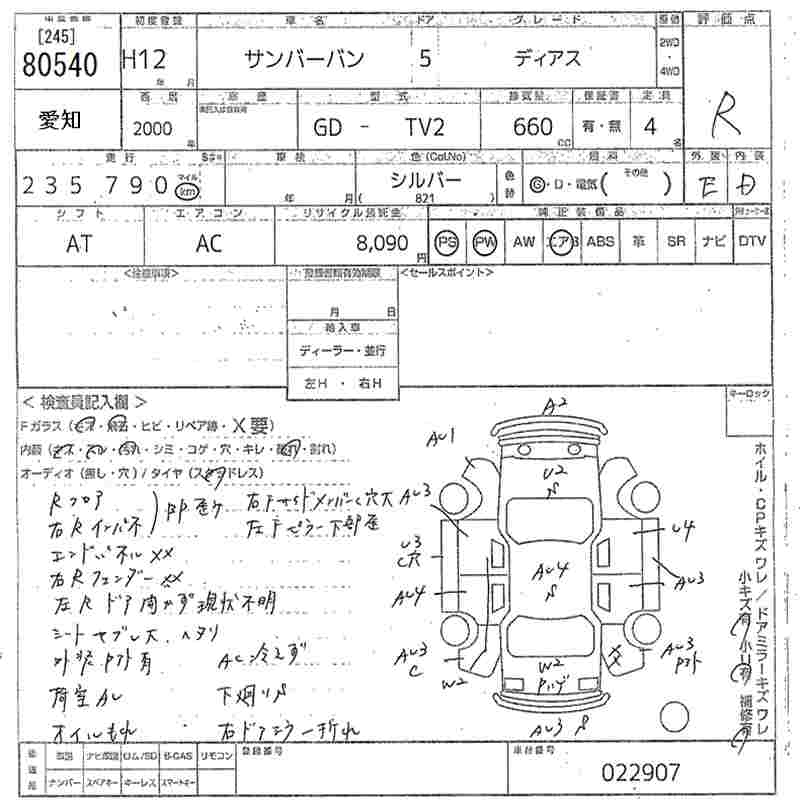 車両番号 初度登録 車名 ドア グレード 駆動 評価点
[245]
80540 H12 年 月 サンバーバン 5 ディアス 2WD・4WD R
愛知 2000 年 型式 GD - TV2 排気量 660 CC 保証書 有・無 定員 4 名
走行 車検 色(Col.No) 燃料 外装 内装
235790 マイル km 年 月 シルバー ( 821 ) 色替 G・D・電気( その他 ) E D
シフト エアコン リサイクル預託金 純正装備品
AT AC 8,090 円 PS PW AW エアB ABS 革 SR ナビ DTV
<検査事項> 登録書類有効期限 <セールスポイント>
月 日
輸入車
ディーラー・並行
左H・右H
<検査員記入欄> キーロック
Fガラス(キズ・飛石・ヒビ・リペア跡・X要)
内装(キズ・スレ・汚れ・シミ・コゲ・穴・キレ・破れ・割れ)
オーディオ(無し・穴)/タイヤ(スタッドレス)
Rフロア
右Rインパネ
エンドパネルXX
右RフェンダーXX
左Rドア 開かず現状不明
外装ヤケ有 AC冷えず
荷室AU 下廻りS
オイルもれ 右ドアミラー折れ
左Fピラー下部歪
A2
AU1
U2
S
AU3
U3
C穴
U4
AU4
AU4
S
AU3
AU3
C
W2
W2
X
AU3
AU3 S
ホイル・CPキズ ワレ/ドアミラーキズ ワレ
小キズ有 小U有 補修有
ナンバー スペアキー キーレス スマートキー
ナビ取説 ROM/SD B-CAS リモコン
登録番号 車台番号
022907